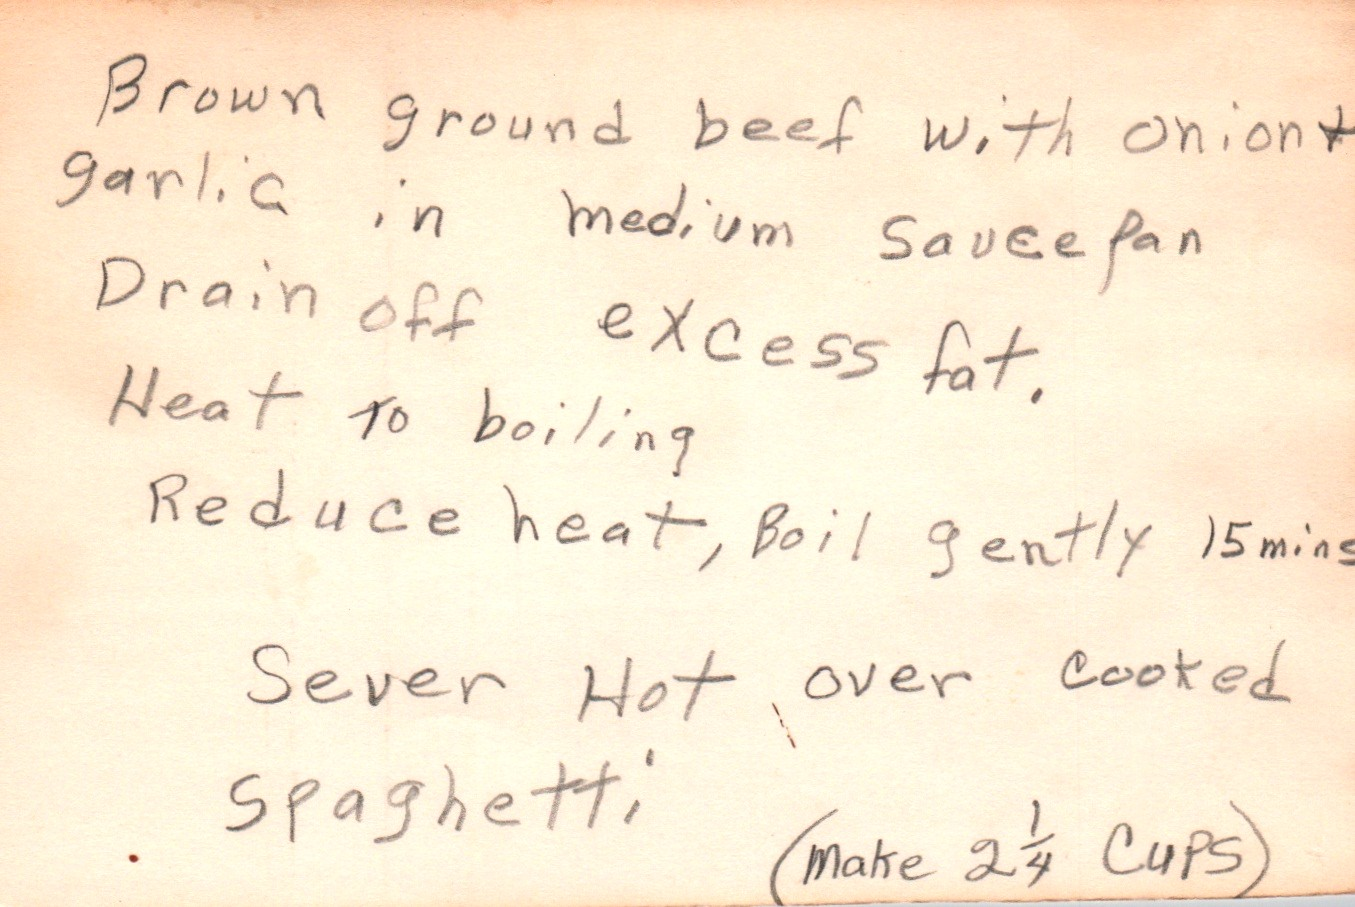 Brown ground beef with onion +
garlic in medium saucepan
Drain off excess fat.
Heat To boiling
Reduce heat, Boil gently 15 mins
Sever Hot over cooked
spaghetti
(Make 2 1/4 Cups)